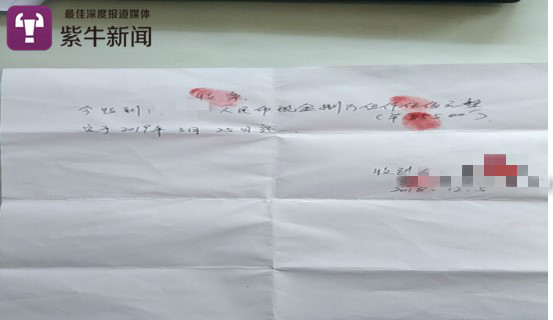 最佳深度报道媒体
紫牛新闻
收条
今收到: 人民币现金捌万伍仟伍佰元整
定于2019年3月25日
收到
2018.12.5